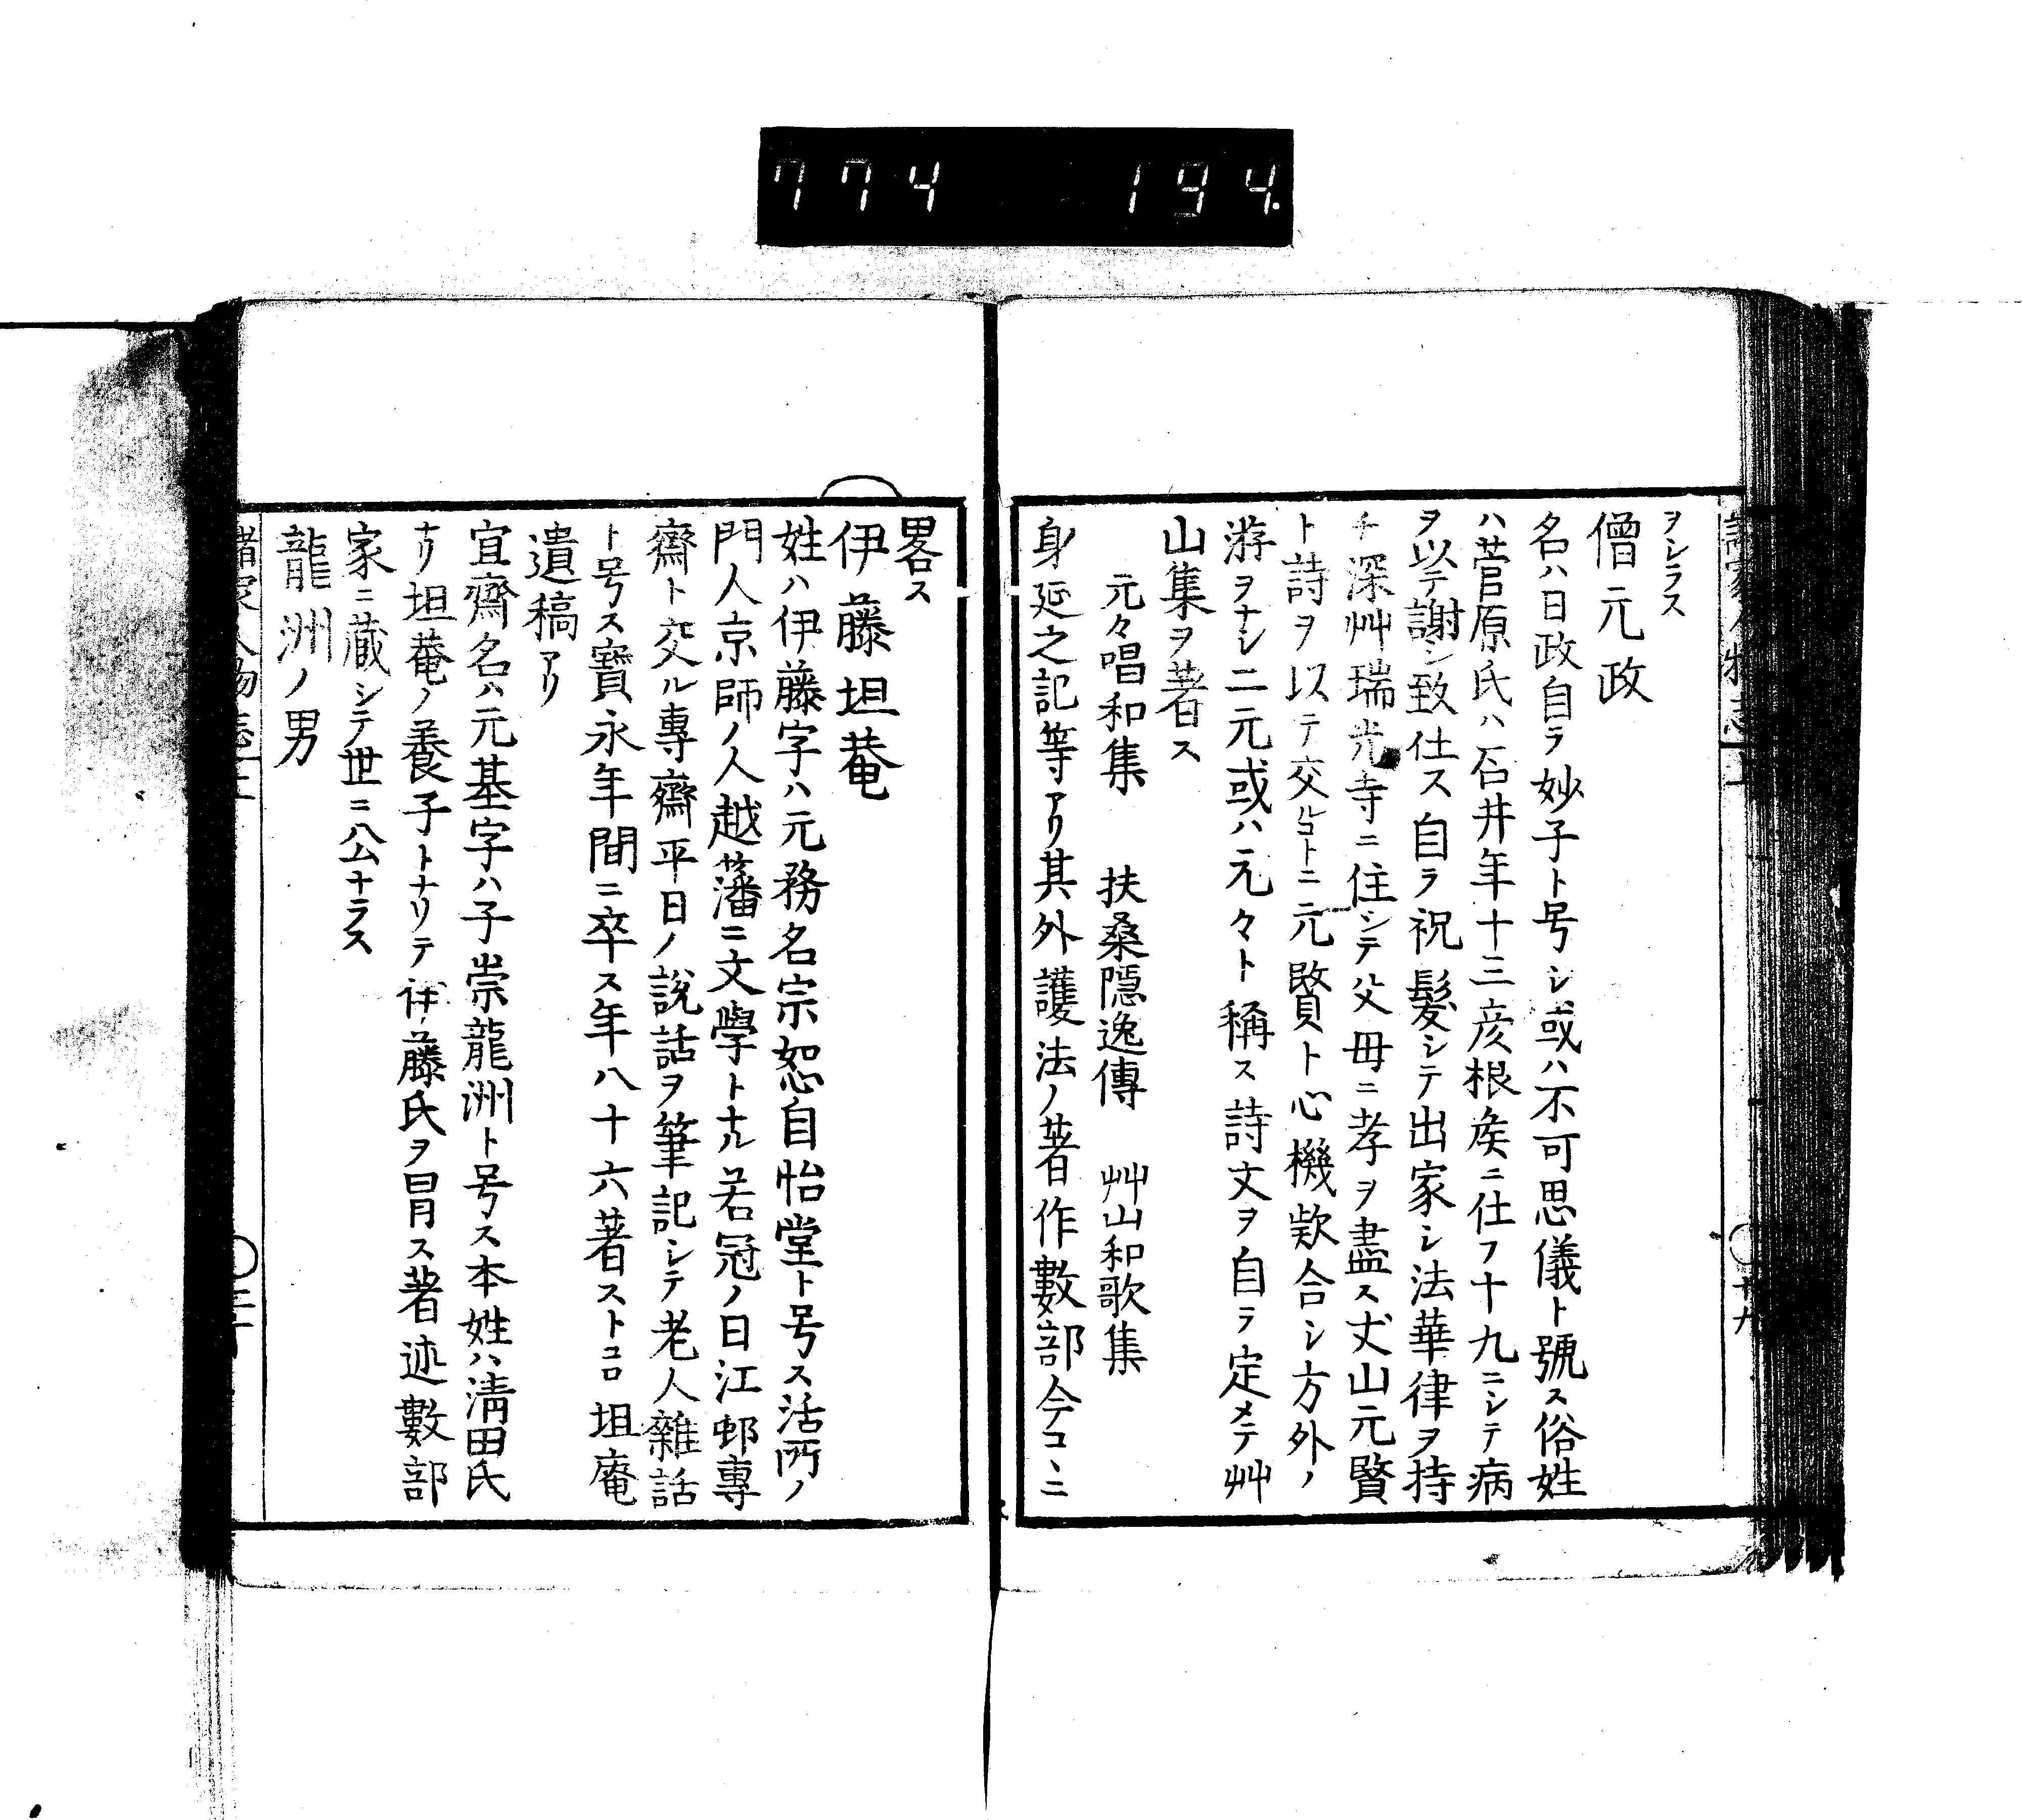 774 194.
ヲシラス
僧元政
名ハ日政自ラ妙子ト号シ或ハ不可思儀ト號ス俗姓
ハ菅原氏ハ石井年十三彦根矦ニ仕フ十九ニシテ病
ヲ以テ謝シ致仕ス自ラ祝髮シテ出家シ法華律ヲ持
チ深艸瑞光寺ニ住シテ父母ニ孝ヲ盡ス丈山元贇
ト詩ヲ以テ交ルコトニ元贇ト心機歀合シ方外ノ
游ヲナシ二元或ハ元々ト稱ス詩文ヲ自ラ定メテ艸
山集ヲ著ス
元々唱和集 扶桑隱逸傳 艸山和歌集
身延之記等アリ其外護法ノ著作數部今コヽニ
畧ス
伊藤坦菴
姓ハ伊藤字ハ元務名宗恕自怡堂ト号ス活所ノ
門人京師ノ人越藩ニ文學トナル若冠ノ日江邨專
齋ト交ル專齋平日ノ說話ヲ筆記シテ老人雜話
ト号ス寶永年間ニ卒ス年八十六著ストコロ坦庵
遺稿アリ
宜齋名ハ元基字ハ子崇龍洲ト号ス本姓ハ清田氏
ナリ坦菴ノ養子トナリテ伊藤氏ヲ冒ス著述數部
家ニ藏シテ世ニ公ナラス
龍洲ノ男
諸家人物志上 十九
諸家人物志上 二十